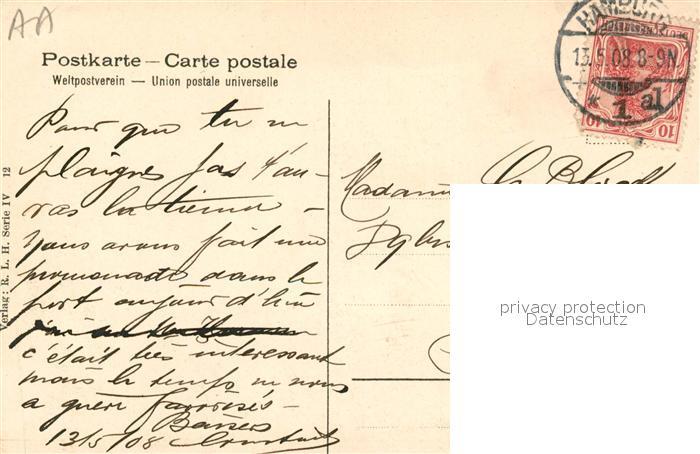 AA
Postkarte – Carte postale
Weltpostverein — Union postale universelle
HAMBURG
13.5.08.8-9N.
* 1 al
10 10
Pour que tu ne
plaignes pas t'au-
ras la tienne –
nous avons fait une
promenade dans le
port aujourd'hui
c'était très intéressant
mais le temps ne nous
a guère favorisés –
Baisers
13/5/08
Madame
Verlag: R. L. H. Serie IV 12
privacy protection
Datenschutz